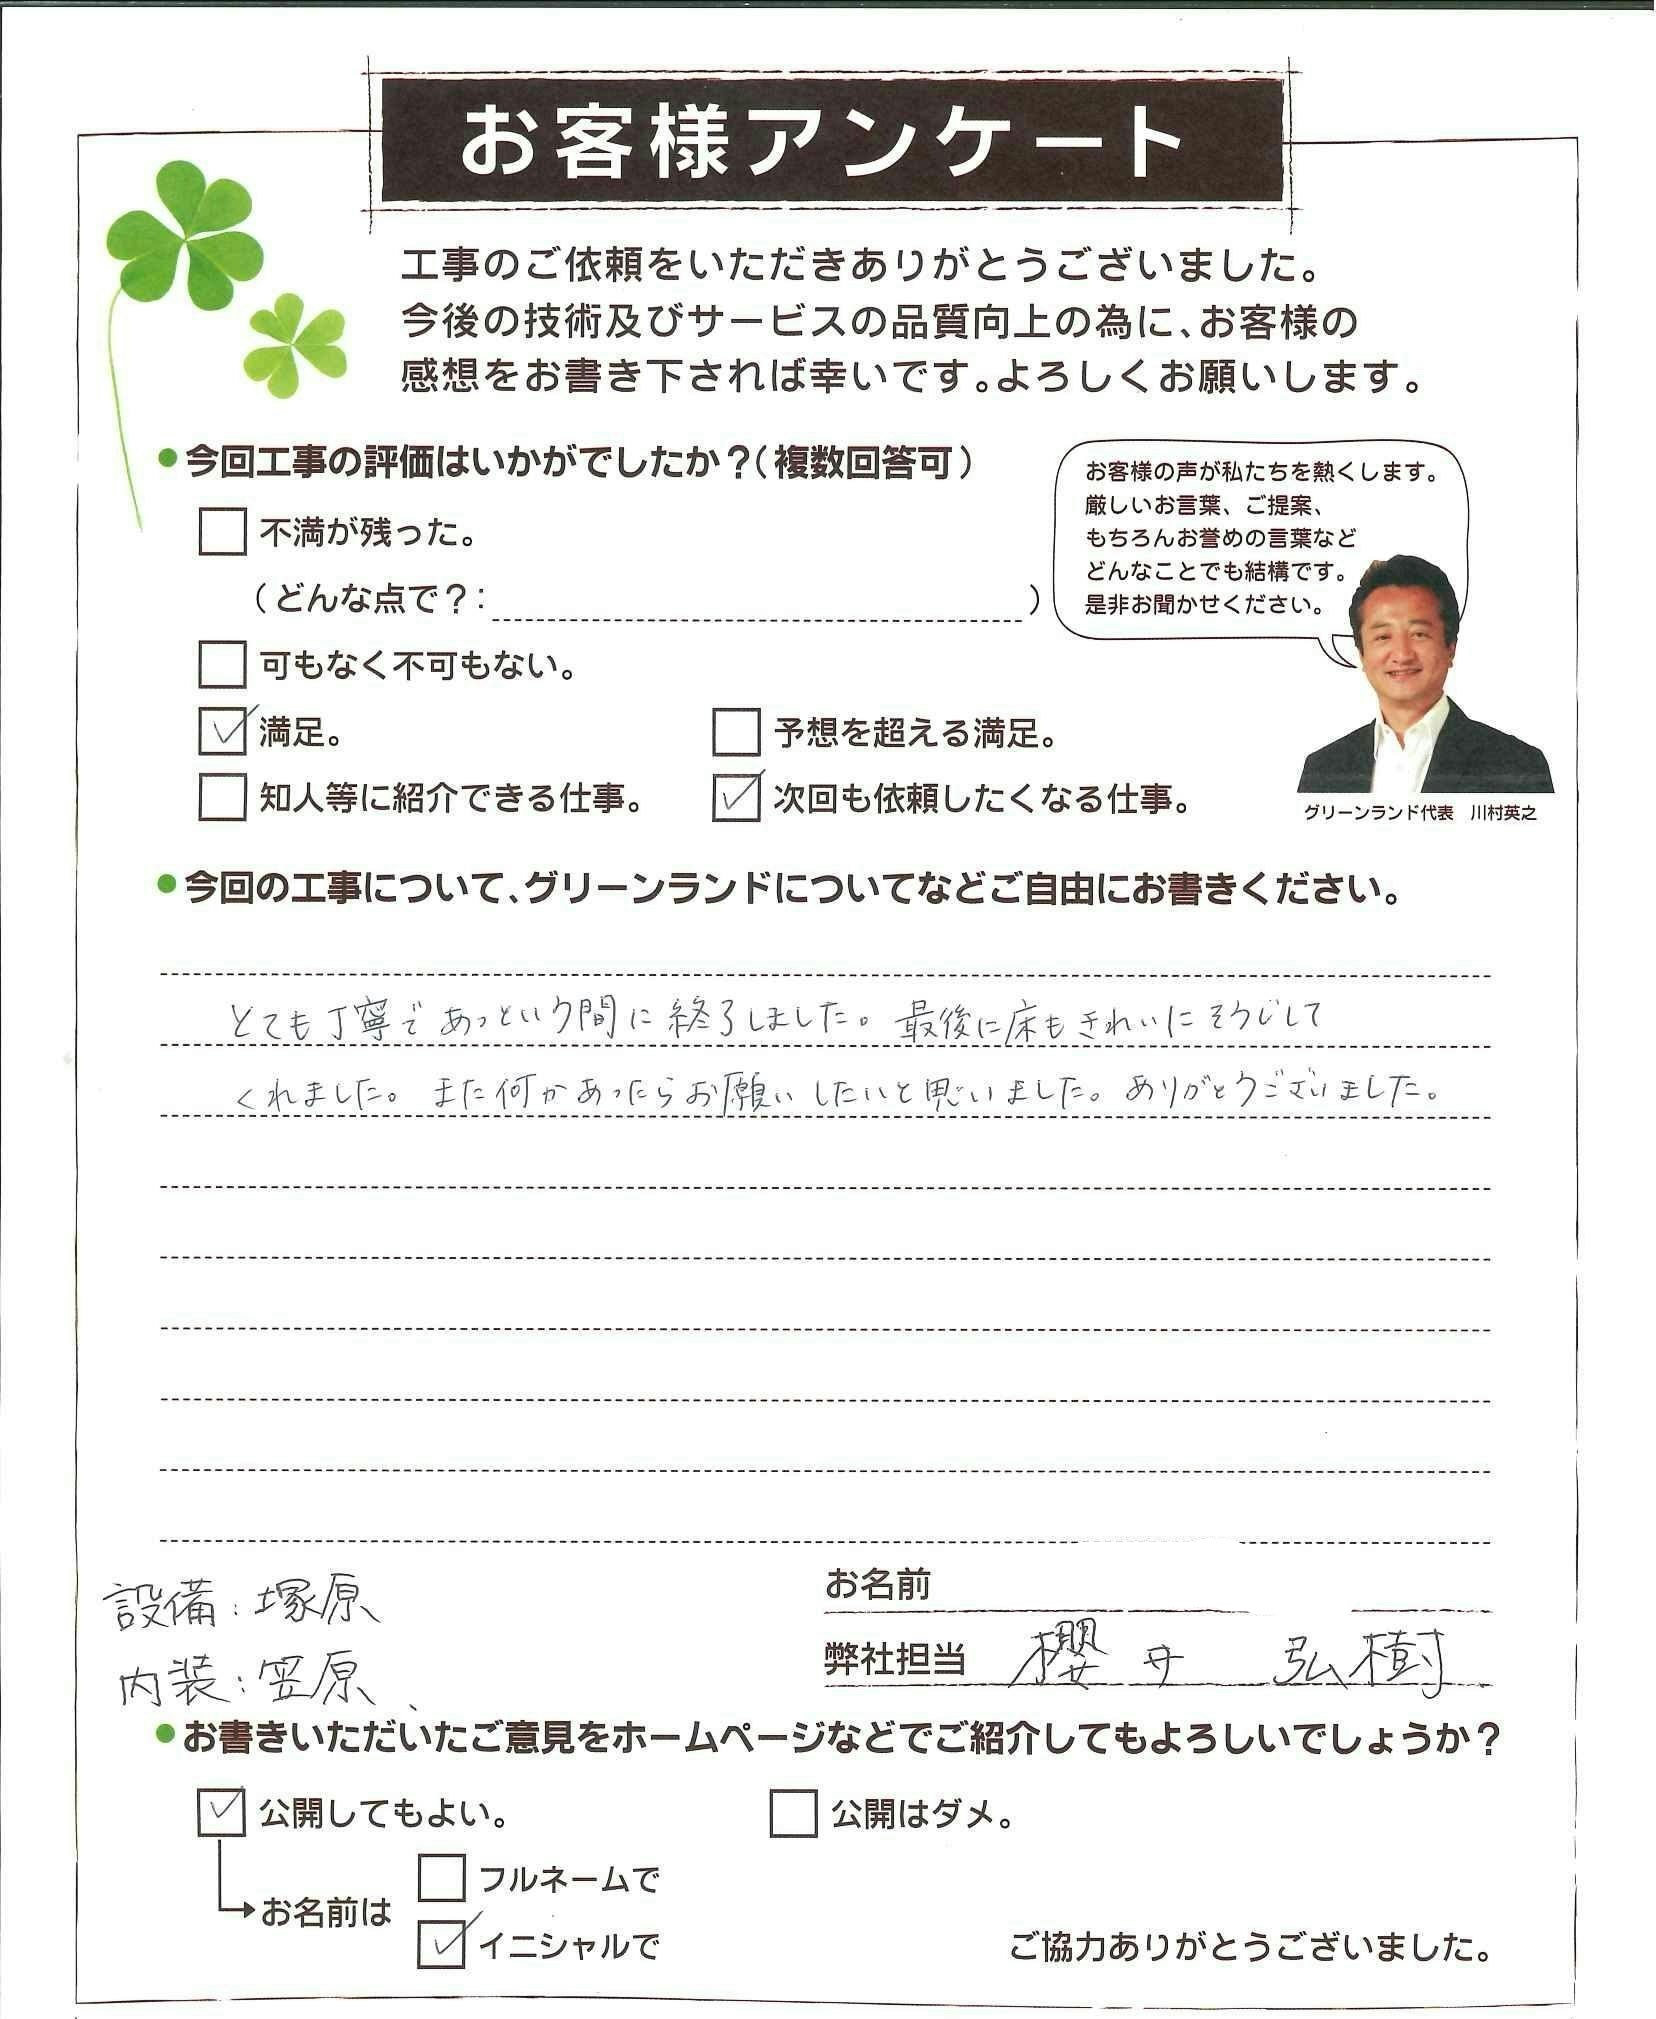 お客様アンケート
工事のご依頼をいただきありがとうございました。
今後の技術及びサービスの品質向上の為に、お客様の
感想をお書き下されば幸いです。よろしくお願いします。
●今回工事の評価はいかがでしたか？（複数回答可）
不満が残った。
（どんな点で？：）
可もなく不可もない。
満足。
予想を超える満足。
知人等に紹介できる仕事。
次回も依頼したくなる仕事。
お客様の声が私たちを熱くします。
厳しいお言葉、ご提案、
もちろんお誉めの言葉など
どんなことでも結構です。
是非お聞かせください。
グリーンランド代表　川村英之
●今回の工事について、グリーンランドについてなどご自由にお書きください。
とても丁寧であっという間に終了しました。最後に床もきれいにそうじして
くれました。また何かあったらお願いしたいと思いました。ありがとうございました。
設備：塚原
内装：笠原
お名前
弊社担当 櫻井 弘樹
●お書きいただいたご意見をホームページなどでご紹介してもよろしいでしょうか？
公開してもよい。
公開はダメ。
お名前は
フルネームで
イニシャルで
ご協力ありがとうございました。